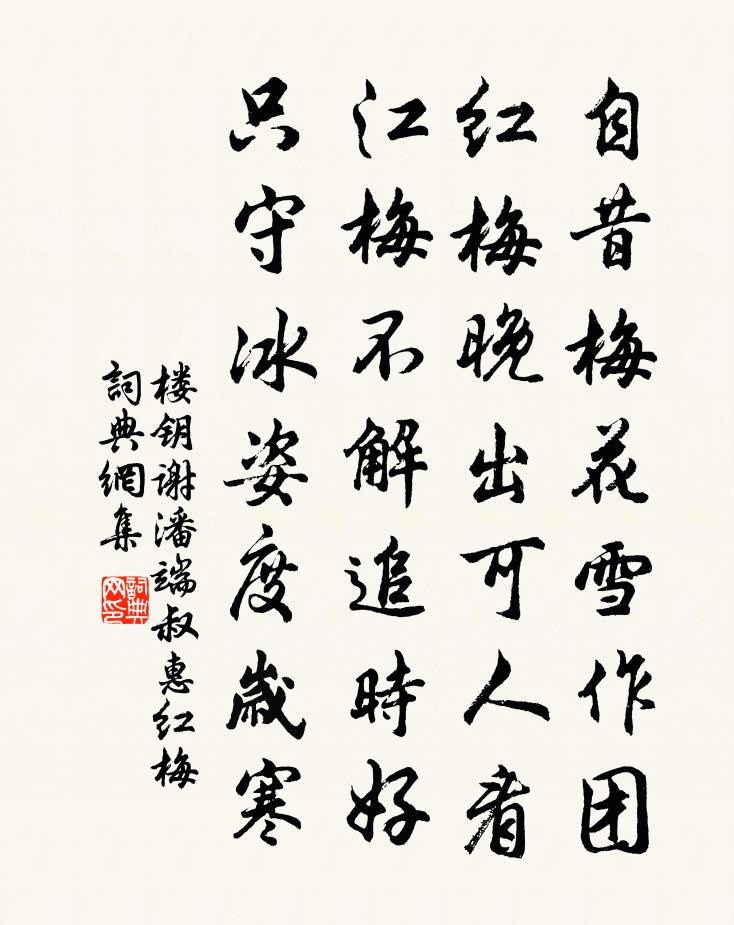 自昔梅花雪作团
红梅晚出可人看
江梅不解追時好
只守冰姿度歲寒
楼钥谢潘端叔惠红梅
詞典網集
詞典
网印